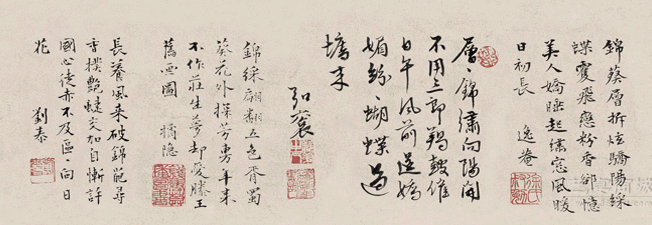 錦葵層折炫驕陽綵
蝶雙飛戀粉香卻憶
美人嬌睡起綺窓風暖
日初長 逸菴
層〻錦繡向陽開
不用三郎羯鼓催
日午風前逞嬌
媚紛〻蝴蝶過
墻来
弘
錦綵翩翩五色胥蜀
葵花外探芳勇年来
不作莊生夢却愛滕王
舊画圖 橘隐
長養風来破錦葩尋
香撲艶蜨交加自慚許
國心徒赤不及區〻向日
花 劉泰